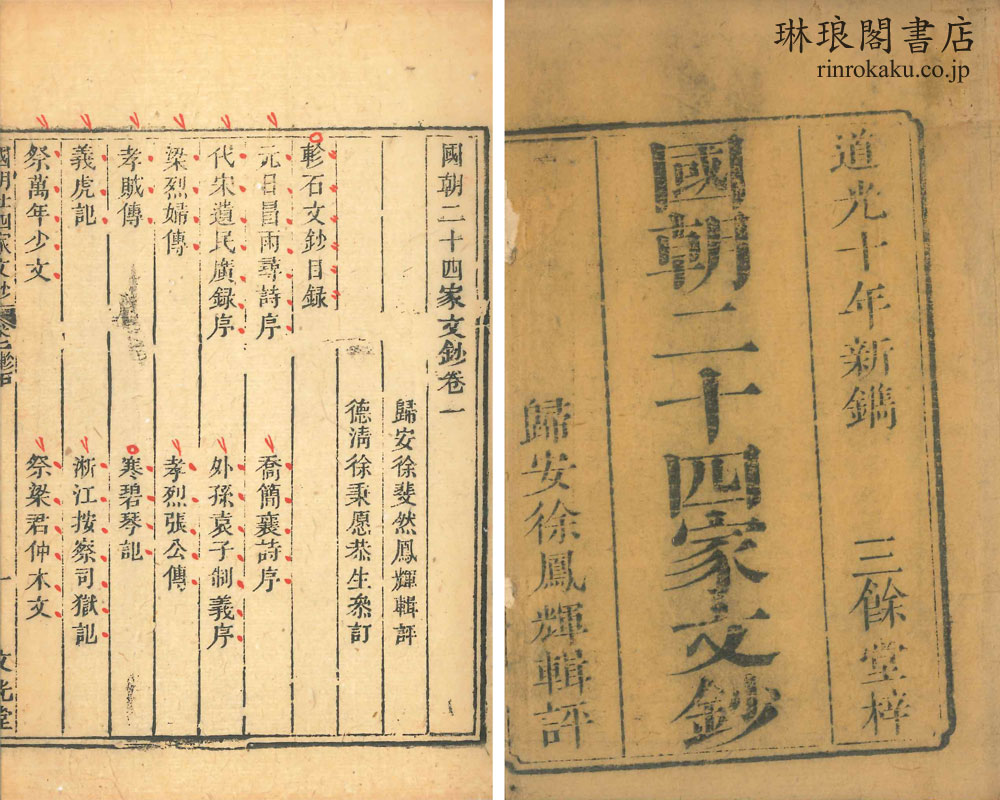 琳琅閣書店
rinrokaku.co.jp
道光十年新鐫　三餘堂梓
國朝二十四家文鈔
歸安徐鳳輝輯評
國朝二十四家文鈔卷一
歸安徐斐然鳳輝輯評
德淸徐秉愿恭生叅訂
軫石文鈔目録
元日冒雨尋詩序　喬簡襄詩序
代宋遺民廣録序　外孫袁子制義序
梁烈婦傳　孝烈張公傳
孝賊傳　寒碧琴記
義虎記　浙江按察司獄記
祭萬年少文　祭梁君仲木文
國朝廿四家文鈔　軫石　一　文光堂